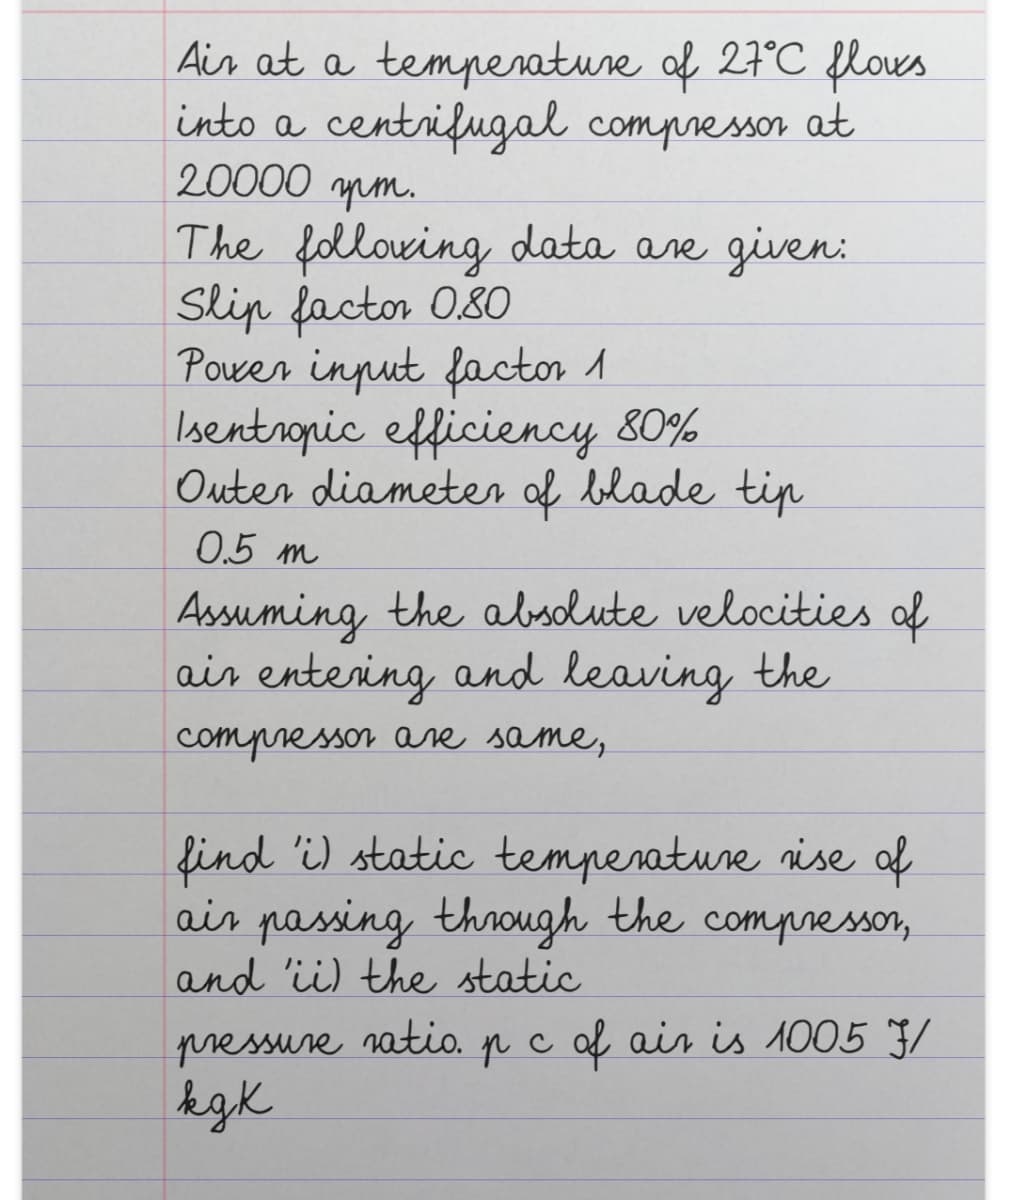 Air at a temperature of 27°C flows
into a centrifugal compressor at
20000 rpm.
The following data are given:
Slip factor 0.80
Power input factor 1
Isentropic efficiency 80%
Outer diameter of blade tip
0.5 m
Assuming the absolute velocities of
air entering and leaving the
compressor are same,
find 'i) static temperature rise of
air passing through the compressor,
and 'ii) the static
pressure ratio. p c of air is 1005 J/
kgK